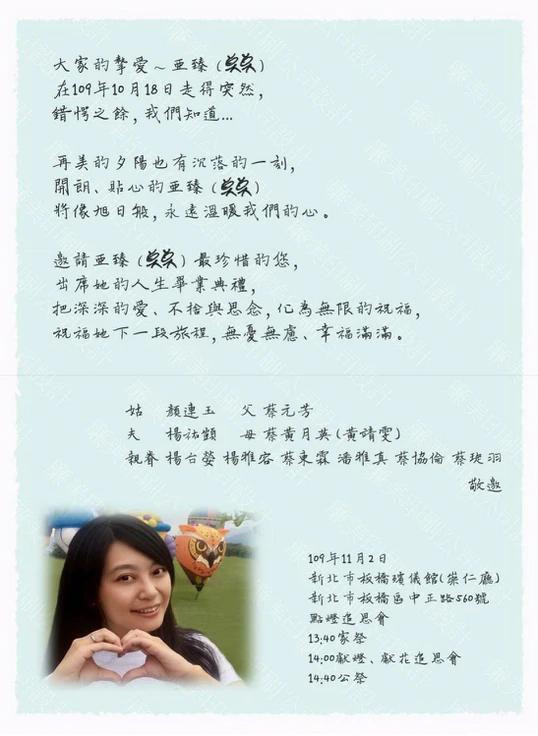 大家的摯愛~亞臻(臭臭)
在109年10月18日走得突然,
錯愕之餘,我們知道...
再美的夕陽也有沉落的一刻,
開朗、貼心的亞臻(臭臭)
將像旭日般,永遠溫暖我們的心。
邀請亞臻(臭臭)最珍惜的您,
出席她的人生畢業典禮,
把深深的愛、不捨與思念,化為無限的祝福,
祝福她下一段旅程,無憂無慮、幸福滿滿。
姑 顏連玉 父 蔡元芳
夫 楊祐顗 母 蔡黃月英(黃靖雯)
親眷 楊台瑩 楊雅容 蔡東霖 潘雅真 蔡協倫 蔡琰羽
敬邀
109年11月2日
新北市板橋殯儀館(崇仁廳)
新北市板橋區中正路560號
點燈追思會
13:40家祭
14:00獻燈、獻花追思會
14:40公祭